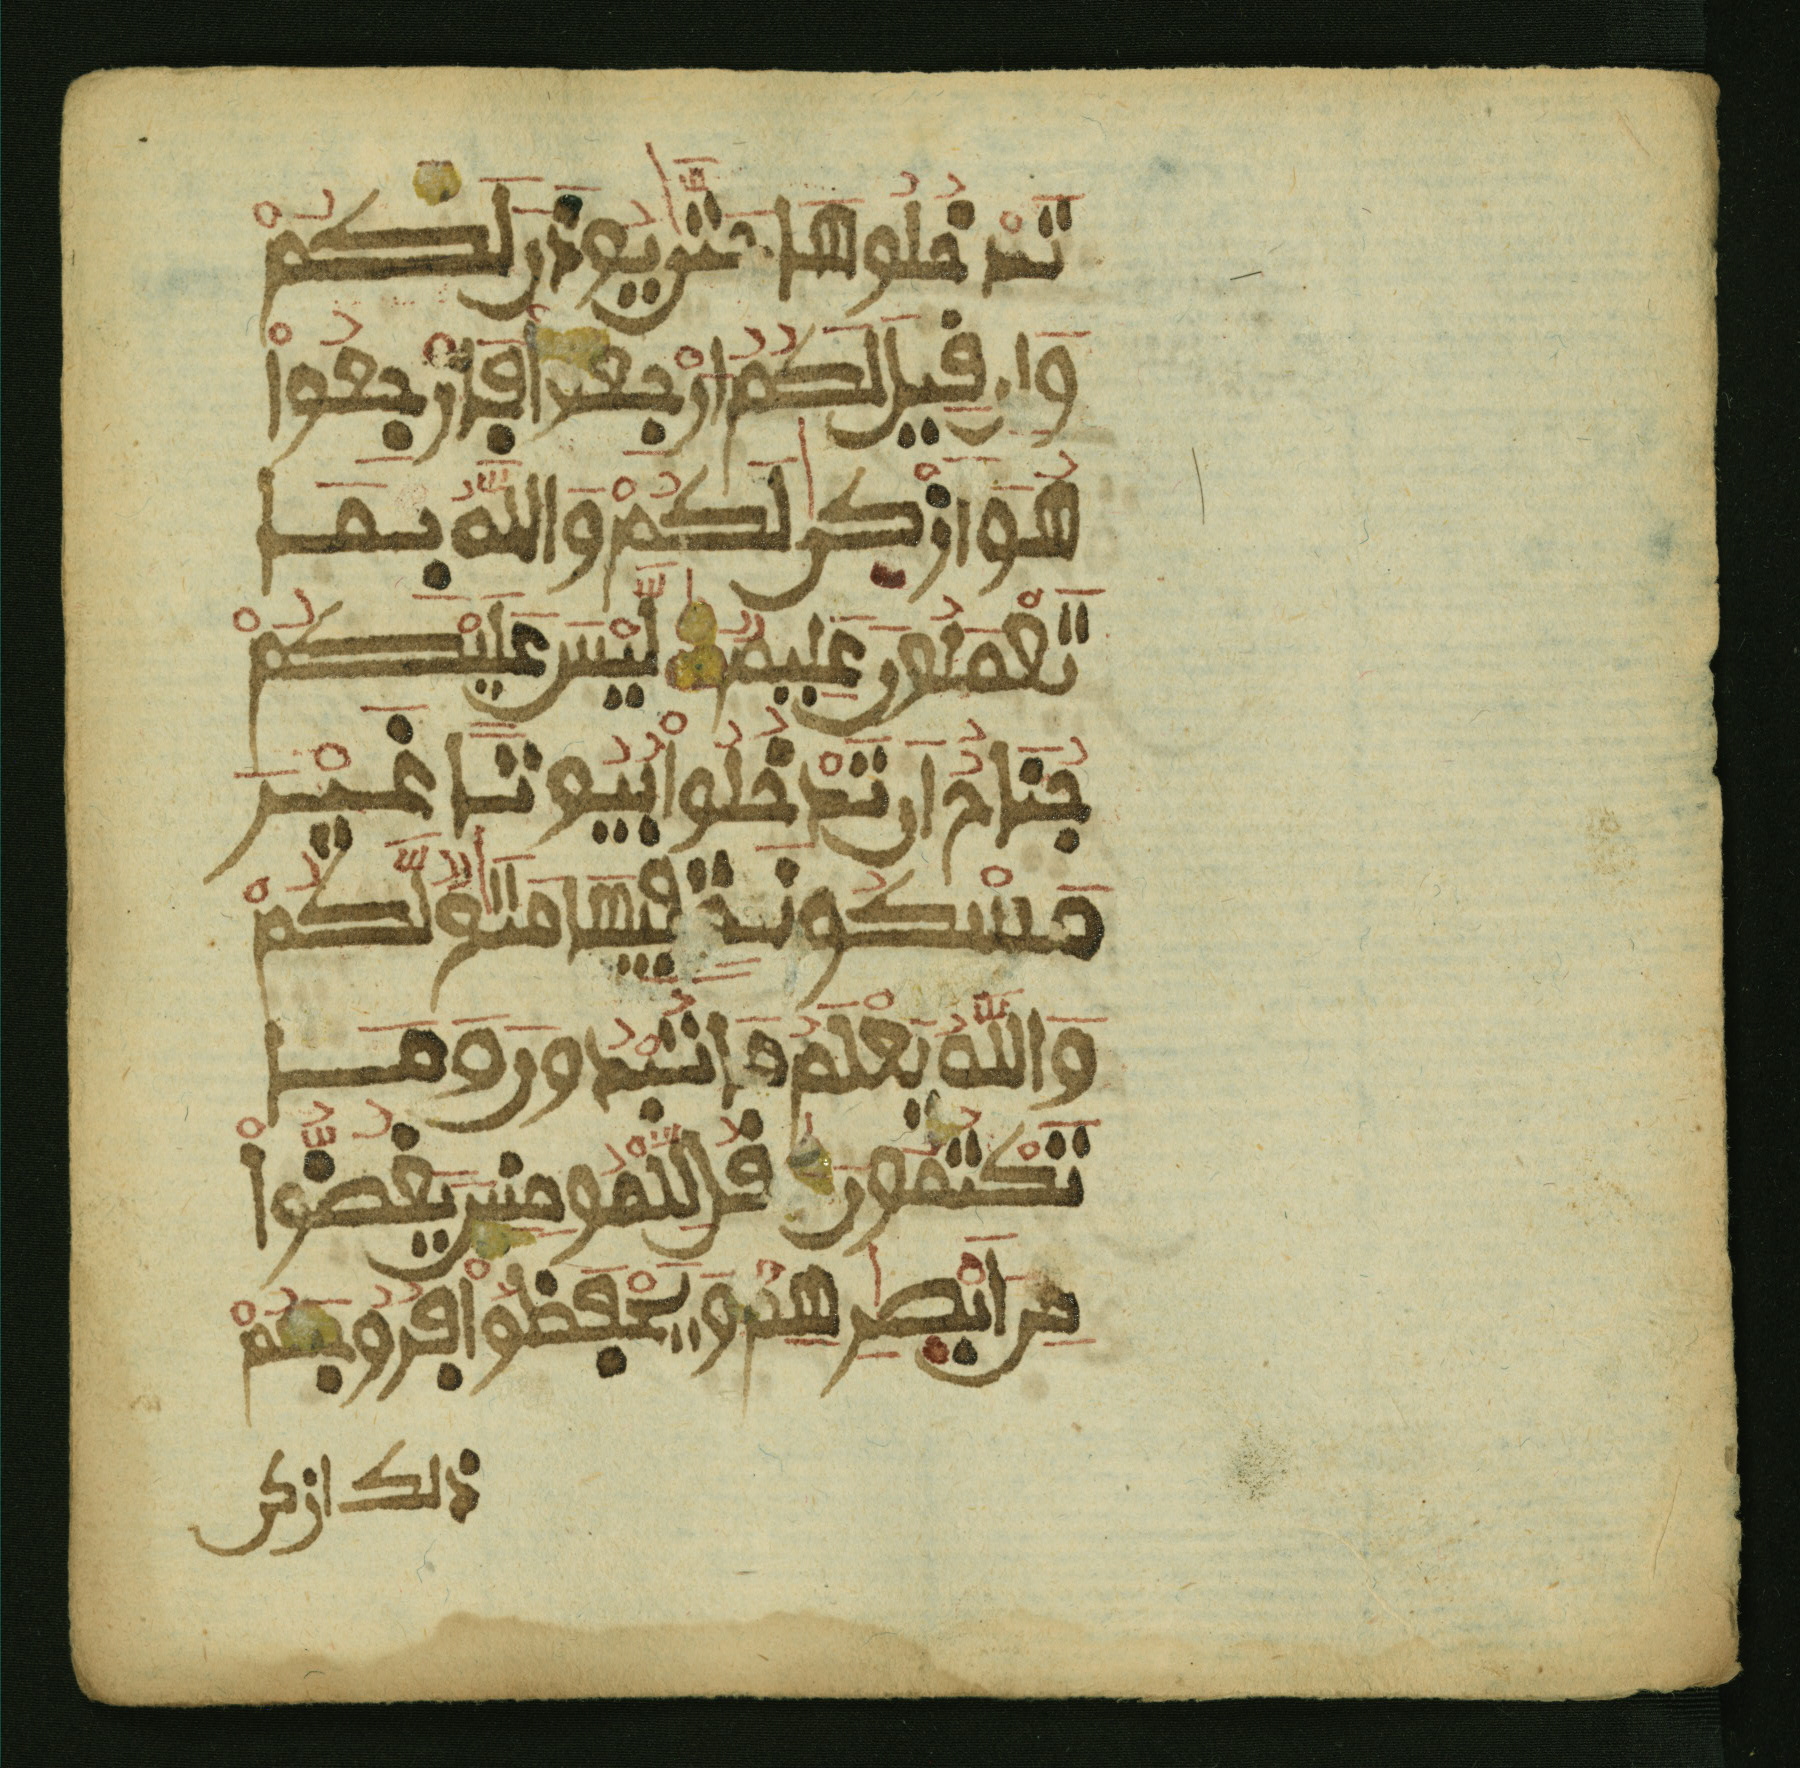 تَدْخُلُوهَا حَتَّىٰ يُوذَنَ لَكُمْ
وَإِن قِيلَ لَكُمُ ارْجِعُوا فَارْجِعُواْ
هُوَ أَزْكىٰ لَكُمْ وَاللَّهُ بِمَا
تَعْمَلُونَ عَلِيمٌ لَّيْسَ عَلَيْكُمْ
جُنَاحٌ أَن تَدْخُلُواْ بُيُوتاً غَيْرَ
مَسْكُونَةٍ فِيهَا مَتَٰعٌ لَّكُمْ
وَاللَّهُ يَعْلَمُ مَا تُبْدُونَ وَمَا
تَكْتُمُونَ قُل لِّلْمُومِنِينَ يَغُضُّواْ
مِنَ ابْصِٰرِهِمْ وَيَحْفَظُواْ فُرُوجَهُمْ
ذلك ازكى